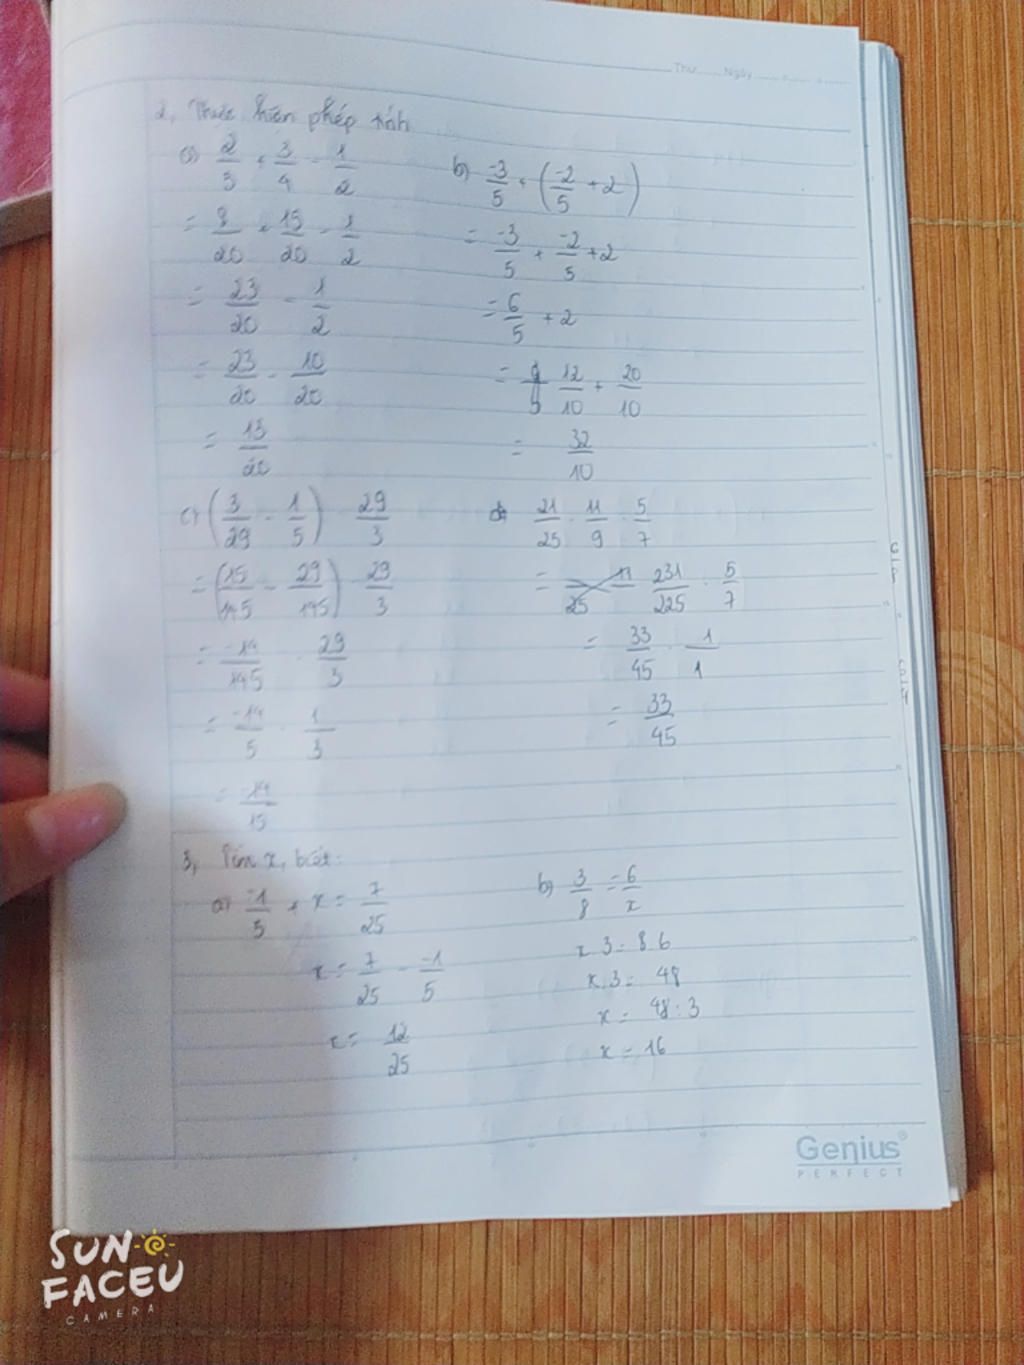 Thứ Ngày
2, Thực hiện phép tính
a) 2/5 + 3/4 - 1/2
= 8/20 + 15/20 - 1/2
= 23/20 - 1/2
= 23/20 - 10/20
= 13/20
b) -3/5 + (-2/5 + 2)
= -3/5 + -2/5 + 2
= 6/5 + 2
= 12/10 + 20/10
= 32/10
c) (3/29 - 1/5) . 29/3
= (15/145 - 29/145) . 29/3
= -14/145 . 29/3
= -14/5 . 1/3
= -14/15
d) 21/25 . 11/9 . 5/7
= 231/225 . 5/7
= 33/45 . 1/1
= 33/45
3, Tìm x, biết:
a) -1/5 + x = 7/25
x = 7/25 - -1/5
x = 12/25
b) 3/8 = 6/x
x.3 = 8.6
x.3 = 48
x = 48 : 3
x = 16
Genius®
PERFECT
SUN
FACEU
CAMERA